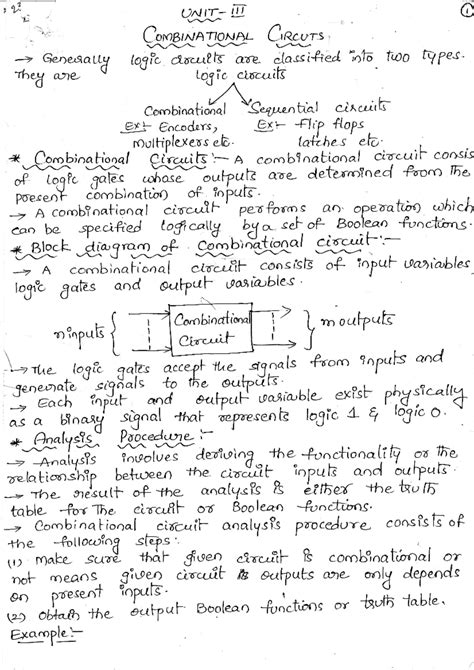 UNIT-III
①
COMBINATIONAL CIRCUTS
→ Generally logic circuits are classified into two types.
They are
logic circuits
Combinational Sequential circuits
Ex:- Encoders, Ex:- Flip flops
Multiplexers etc. latches etc.
* Combinational Circuits:- A combinational circuit consis
of logic gates whose outputs are determined from the
present combination of inputs.
→ A combinational circuit performs an operation which
can be specified logically by a set of Boolean functions.
* Block diagram of Combinational circuit:-
→ A combinational circuit consists of input variables
logic gates and output variables.
n inputs { Combinational Circuit } m outputs
→ The logic gates accept the signals from inputs and
generate signals to the outputs.
→ Each input and output variable exist physically
as a binary signal that represents logic 1 & logic 0.
* Analysis Procedure:-
→ Analysis involves deriving the functionality or the
relationship between the circuit inputs and outputs.
→ The result of the analysis is either the truth
table for the circuit or Boolean functions.
→ Combinational circuit analysis procedure consists of
the following steps:
(1) make sure that given circuit is combinational or
not means given circuit is outputs are only depends
on present inputs.
(2) obtain the output Boolean functions or truth table.
Example:-